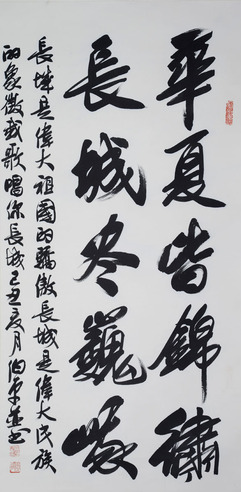 華夏皆錦繡
長城尽巍峨
長城是偉大祖國的驕傲長城是偉大民族
的象徵我歌唱你長城己丑夏月